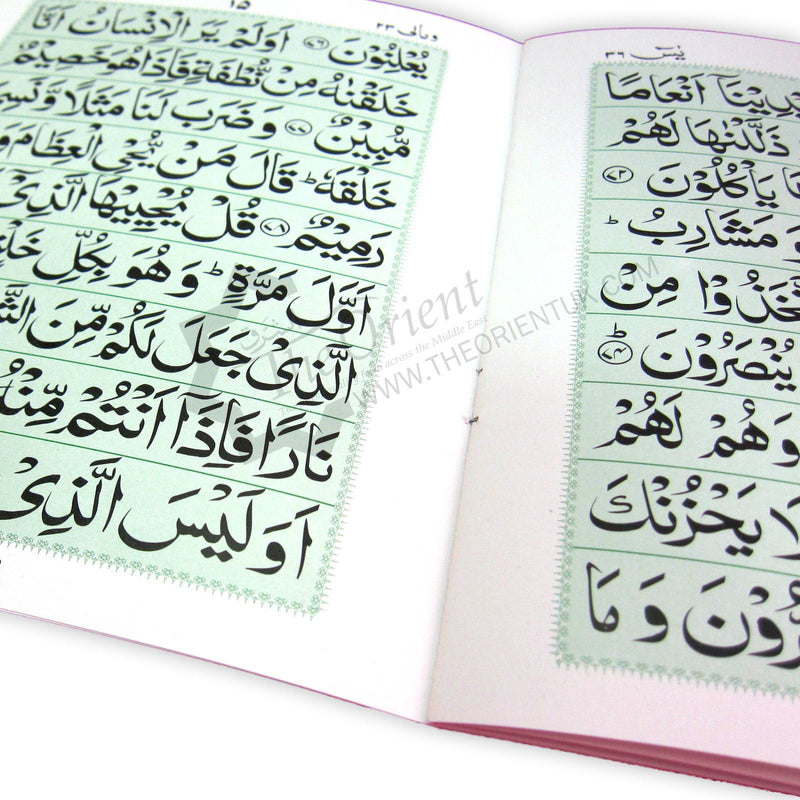 یٰسٓ ٣٦
اَنْعَامًا
ذَلَّلْنٰهَا لَهُمْ
يَاْكُلُوْنَ ﴿٧٢﴾
وَ مَشَارِبُ ؕ
تَّخَذُوْا مِنْ
يُنْصَرُوْنَ ﴿٧٤﴾ ؕ
وَهُمْ لَهُمْ
لَا يَحْزُنْكَ
رُّوْنَ وَ مَا
ومالی ٢٣ ١٥
يُعْلِنُوْنَ ﴿٧٦﴾ اَوَلَمْ يَرَ الْاِنْسَانُ اَنَّا
خَلَقْنٰهُ مِنْ نُّطْفَةٍ فَاِذَا هُوَ خَصِيْمٌ
مُّبِيْنٌ ﴿٧٧﴾ وَ ضَرَبَ لَنَا مَثَلًا وَّ نَسِيَ
خَلْقَهٗ ؕ قَالَ مَنْ يُّحْیِ الْعِظَامَ وَ
رَمِيْمٌ ﴿٧٨﴾ قُلْ يُحْيِيْهَا الَّذِیْۤ
اَوَّلَ مَرَّةٍ ؕ وَ هُوَ بِكُلِّ خَلْ
الَّذِیْ جَعَلَ لَكُمْ مِّنَ الشَّ
نَارًا فَاِذَاۤ اَنْتُمْ مِّنْهُ
اَوَلَيْسَ الَّذِیْ
The Orient
across the Middle East
WWW.THEORIENTUK.COM